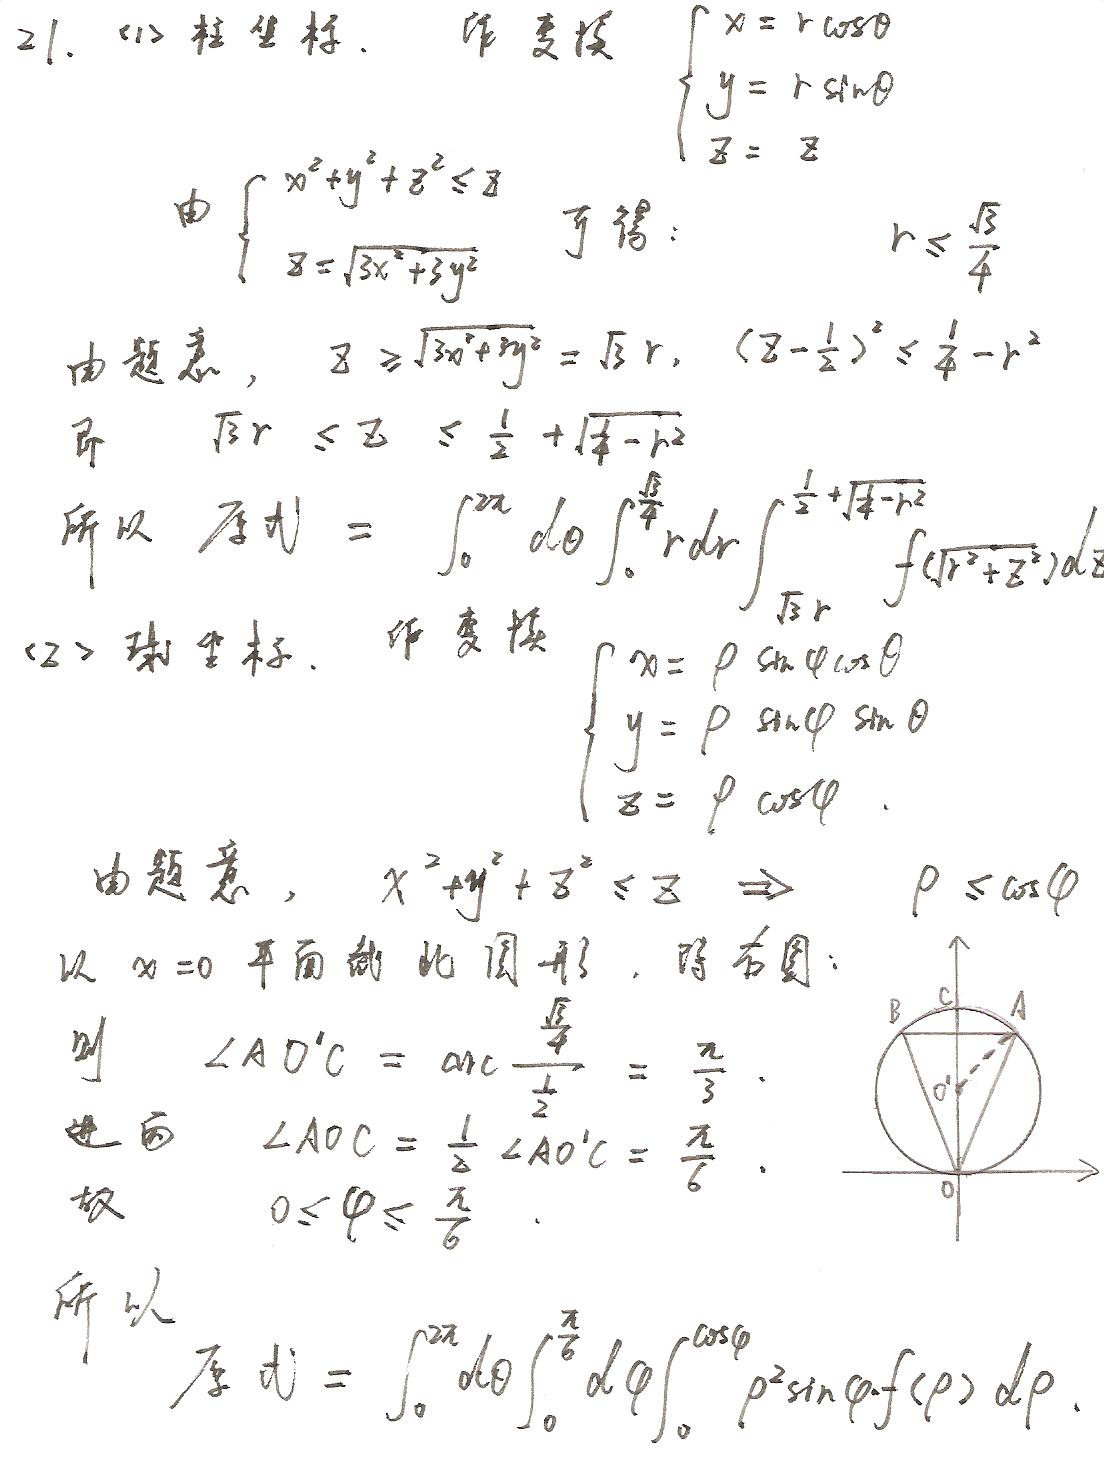 21. <1> 柱坐标. 作变换 { x = r cosθ
y = r sinθ
z = z
由 { x²+y²+z² ≤ z
z = √(3x²+3y²) 可得: r ≤ √3/4
由题意, z ≥ √(3x²+3y²) = √3 r, (z-1/2)² ≤ 1/4 - r²
即 √3 r ≤ z ≤ 1/2 + √(1/4 - r²)
所以 原式 = ∫₀^{2π} dθ ∫₀^{√3/4} r dr ∫_{√3 r}^{1/2+√(1/4-r²)} f(√(r²+z²)) dz
<2> 球坐标. 作变换 { x = ρ sinφ cosθ
y = ρ sinφ sinθ
z = ρ cosφ .
由题意, x²+y²+z² ≤ z ⇒ ρ ≤ cosφ
以 x=0 平面截此图形, 时右图:
则 ∠AO'C = arc (√3/4)/(1/2) = π/3 .
进而 ∠AOC = 1/2 ∠AO'C = π/6 .
故 0 ≤ φ ≤ π/6 .
B C A
O'
O
所以
原式 = ∫₀^{2π} dθ ∫₀^{π/6} dφ ∫₀^{cosφ} ρ² sinφ·f(ρ) dρ .